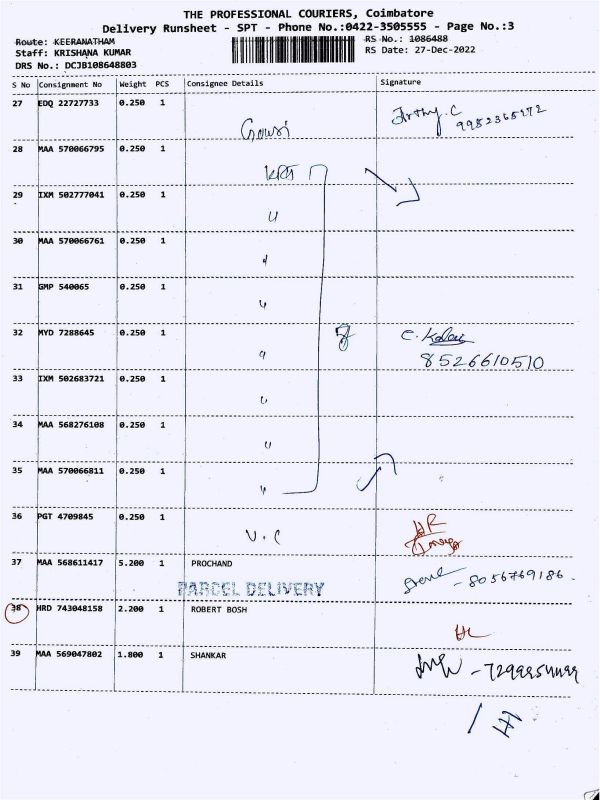 THE PROFESSIONAL COURIERS, Coimbatore
Delivery Runsheet - SPT - Phone No.:0422-3505555 - Page No.:3
Route: KEERANATHAM RS No.: 1086488
Staff: KRISHANA KUMAR RS Date: 27-Dec-2022
DRS No.: DCJB108648803
S No Consignment No Weight PCS Consignee Details Signature
27 EDQ 22727733 0.250 1
28 MAA 570066795 0.250 1
29 IXM 502777041 0.250 1
30 MAA 570066761 0.250 1
31 GMP 540065 0.250 1
32 MYD 7288645 0.250 1
8526610510
33 IXM 502683721 0.250 1
34 MAA 568276108 0.250 1
35 MAA 570066811 0.250 1
36 PGT 4709845 0.250 1
V.C
37 MAA 568611417 5.200 1 PROCHAND
- 8056769186.
PARCEL DELIVERY
38 HRD 743048158 2.200 1 ROBERT BOSH
39 MAA 569047802 1.800 1 SHANKAR